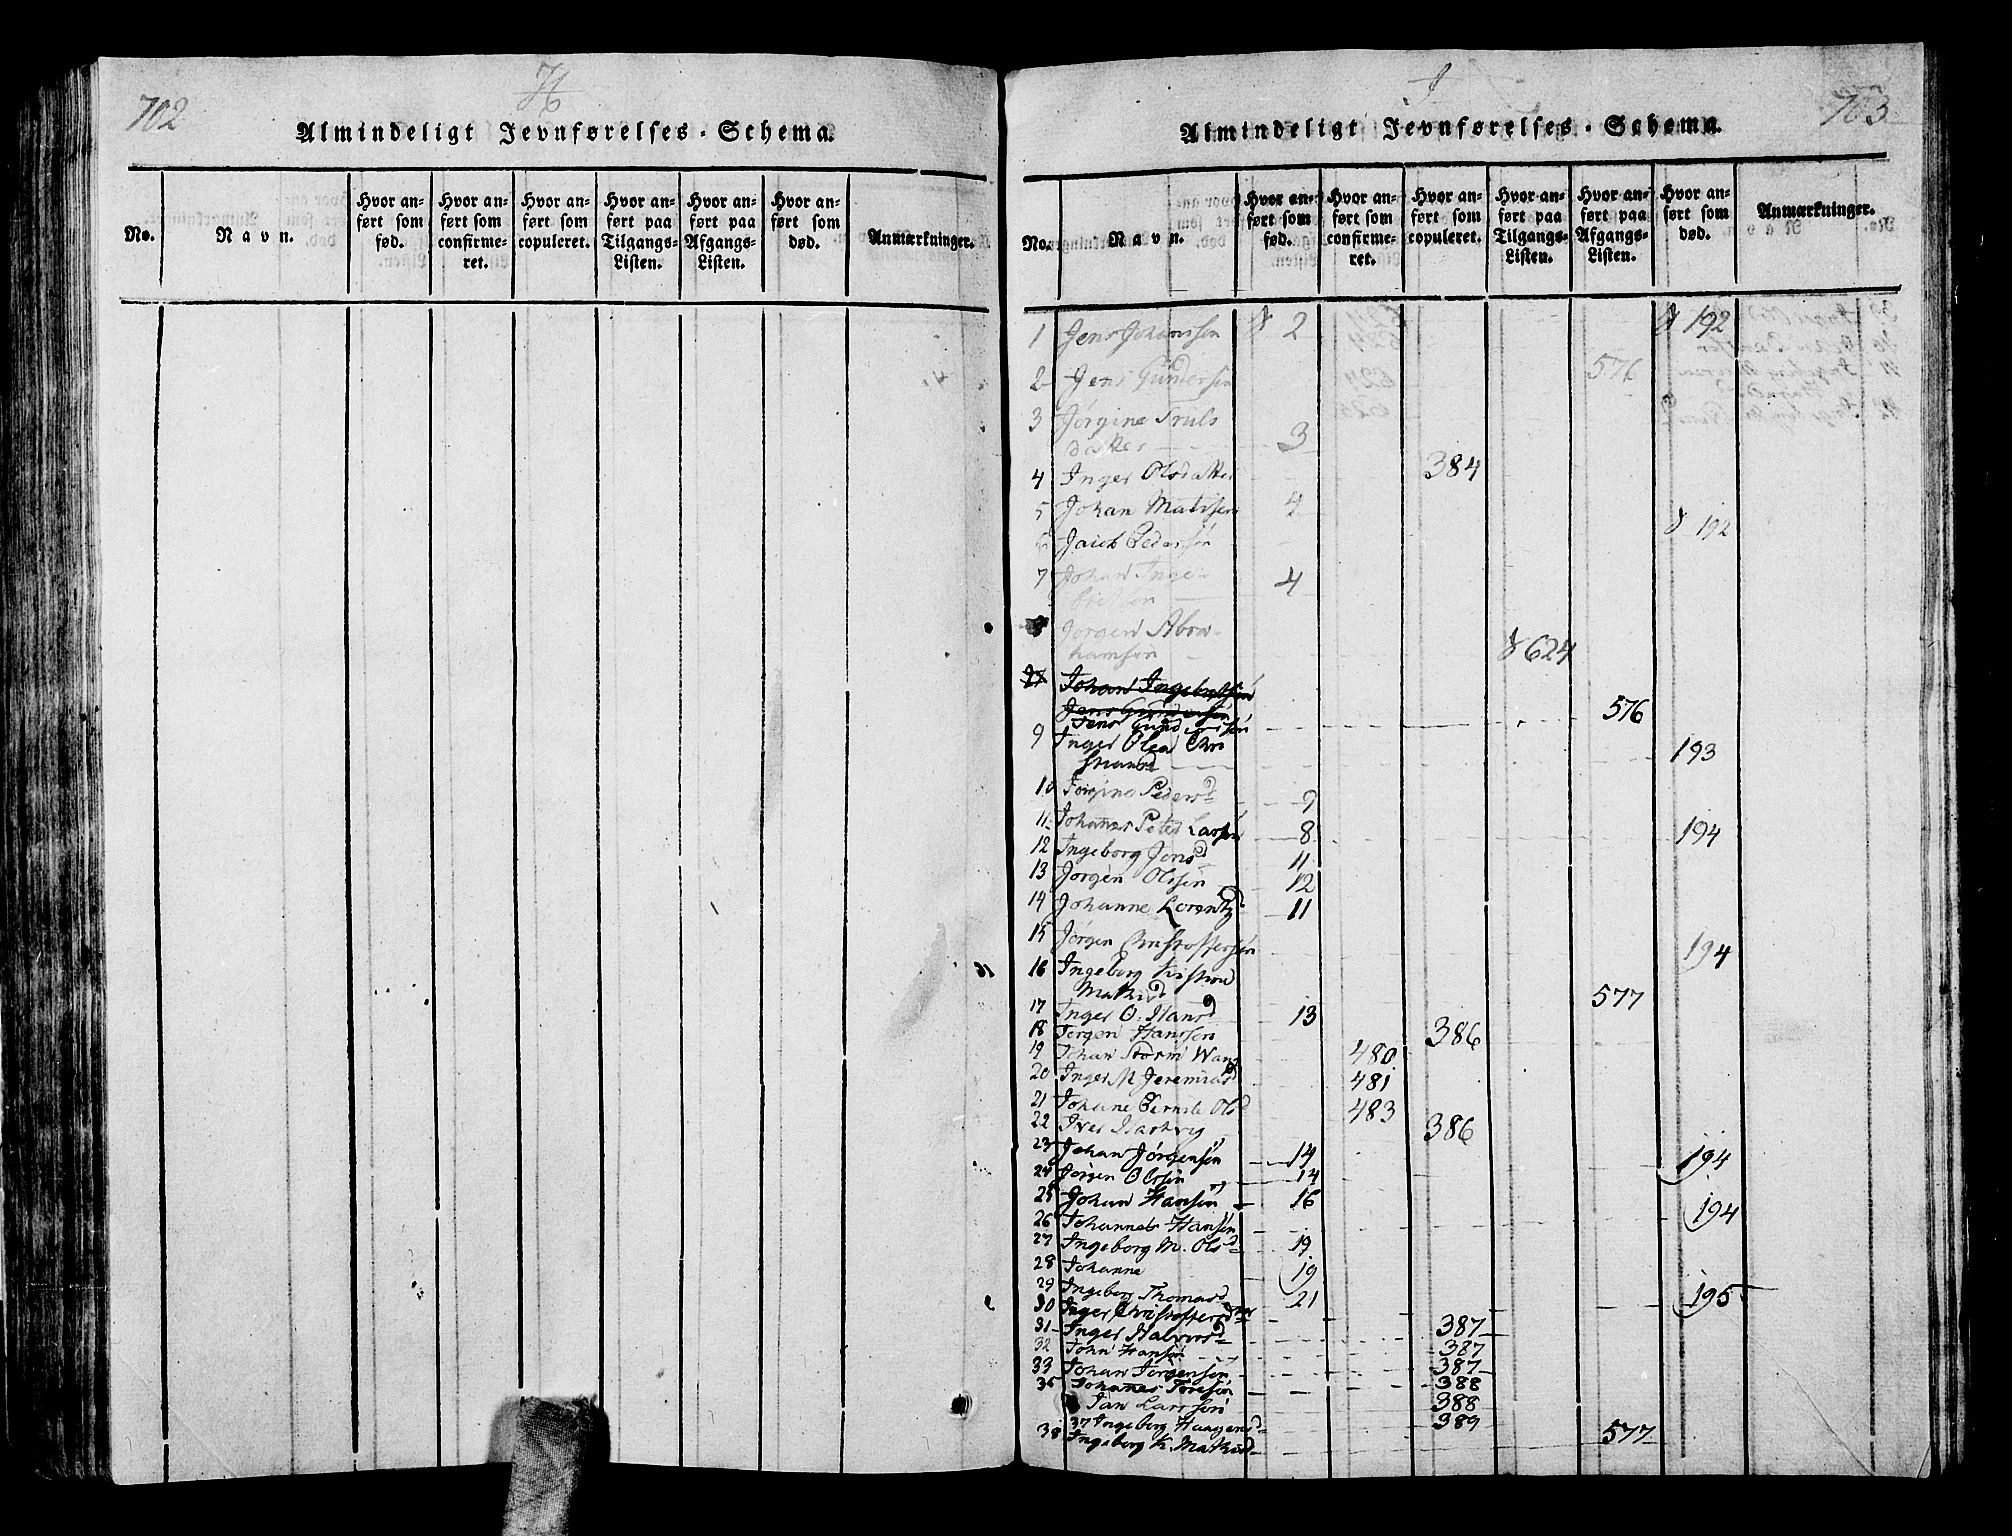 702
H
Almindeligt Jevnførelses-Schema.
No.
Navn.
Hvor anført som fød.
Hvor anført som confirmeret.
Hvor anført som copuleret.
Hvor anført paa Tilgangs-Listen.
Hvor anført paa Afgangs-Listen.
Hvor anført som død.
Anmærkninger.
J
703
Almindeligt Jevnførelses-Schema.
No.
Navn.
Hvor anført som fød.
Hvor anført som confirmeret.
Hvor anført som copuleret.
Hvor anført paa Tilgangs-Listen.
Hvor anført paa Afgangs-Listen.
Hvor anført som død.
Anmærkninger.
1 Jens Johanssen 2 192
2 Jens Gundersen 576
3 Jørgine Truls
datter 3
4 Inger Olsdatter 384
5 Johan Matissen 4
6 Pedersøn 192
7 Johan Inge-
4
8 Jørgen Abra-
hamsen 624
Johan Ingebretsen
Jens Gundersen
Jens Gundersøn 576
9 Inger Olea Chri
193
10 Jørgine Pedersd 7
11 Johannes Peter Larsen 8 194
12 Ingeborg Jensd 11
13 Jørgen Olssøn 12
14 Johanne Lorentzd 11
15 Jørgen Christoffersøn 194
16 Ingeborg
Mathisd 577
17 Inger O. Hansd 13
18 Jørgen Hanssøn 386
19 Johan Storm Wang 480
20 Inger M Jeremiasd 481
21 Johane Olsd 483
22 Iver Hartvig 386
23 Johan Jørgensøn 14 194
24 Jørgen Olssøn 14
25 Johan Hansøn 16
26 Johannes Hansøn 194
27 Ingeborg M. Olsd 19
28 Johanne 19
29 Ingeborg Thomasd 21 195
30 Inger Christoffersd 387
31 Inger Halvorsd 387
32 John Hansøn 387
33 Johan Jørgensøn 388
35 Johannes Toresøn 388
Jan Larssøn 389
37 Ingeborg Haagensd
38 Ingeborg K. Mathisd 577